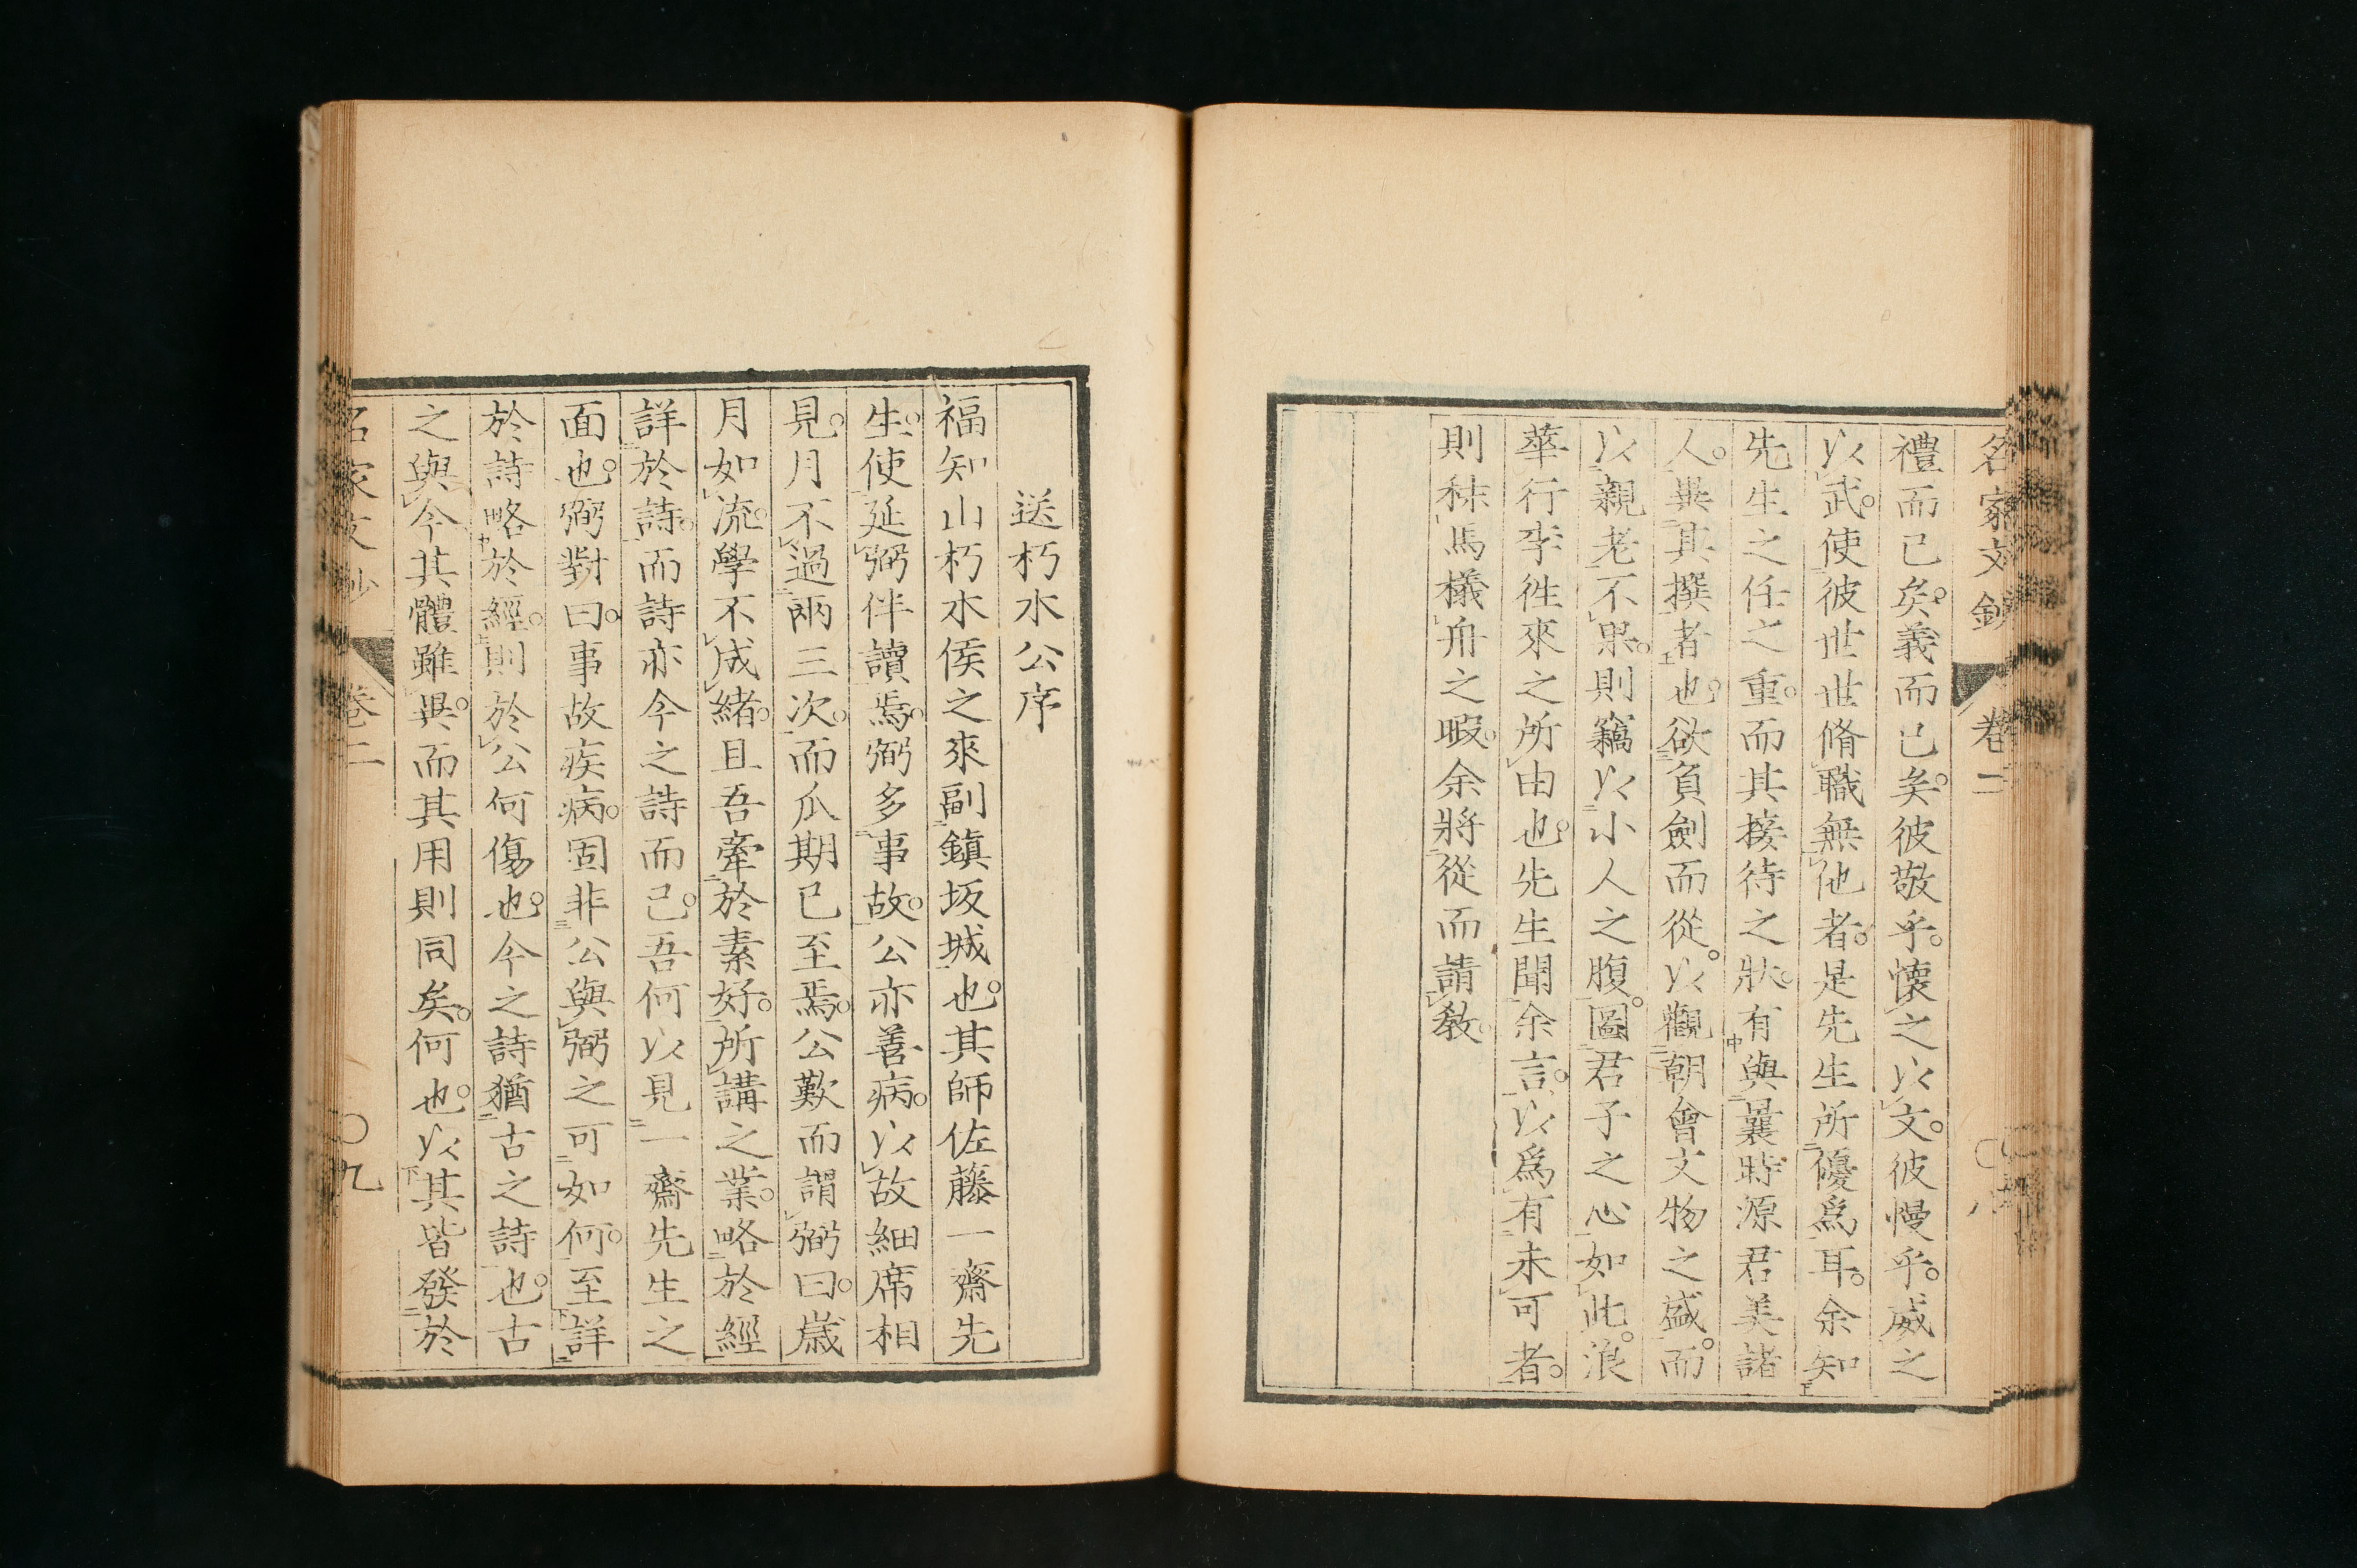 名家文鈔 卷二 〇八
禮而已矣。義而已矣。彼敬乎。懷之以文。彼慢乎。威之
以武。使彼世世脩職無他者。是先生所優爲耳。余知
先生之任之重。而其接待之狀。有與曩時源君美諸
人。異其撰者也。欲負劍而從。以觀朝會文物之盛。而
以親老不果。則竊以小人之腹。圖君子之心如此。浪
華行李徃來之所由也。先生聞余言。以爲有未可者。
則秣馬檥舟之暇。余將從而請敎。
送朽木公序
福知山朽木侯之來副鎮坂城也。其師佐藤一齋先
生。使延弼伴讀焉。弼多事故。公亦善病。以故細席相
見。月不過兩三次。而瓜期已至焉。公歎而謂弼曰。歲
月如流。學不成緒。且吾牽於素好。所講之業。略於經
詳於詩。而詩亦今之詩而已。吾何以見一齋先生之
面也。弼對曰。事故疾病。固非公與弼之可如何。至詳
於詩略於經。則於公何傷也。今之詩猶古之詩也。古
之與今其體雖異。而其用則同矣。何也。以其皆發於
名家文鈔 卷二 〇九